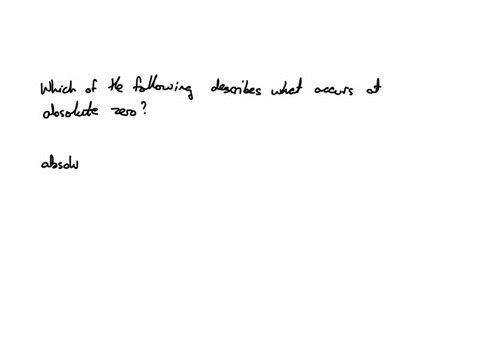 Which of the following describes what occurs at
absolute zero?
absolu